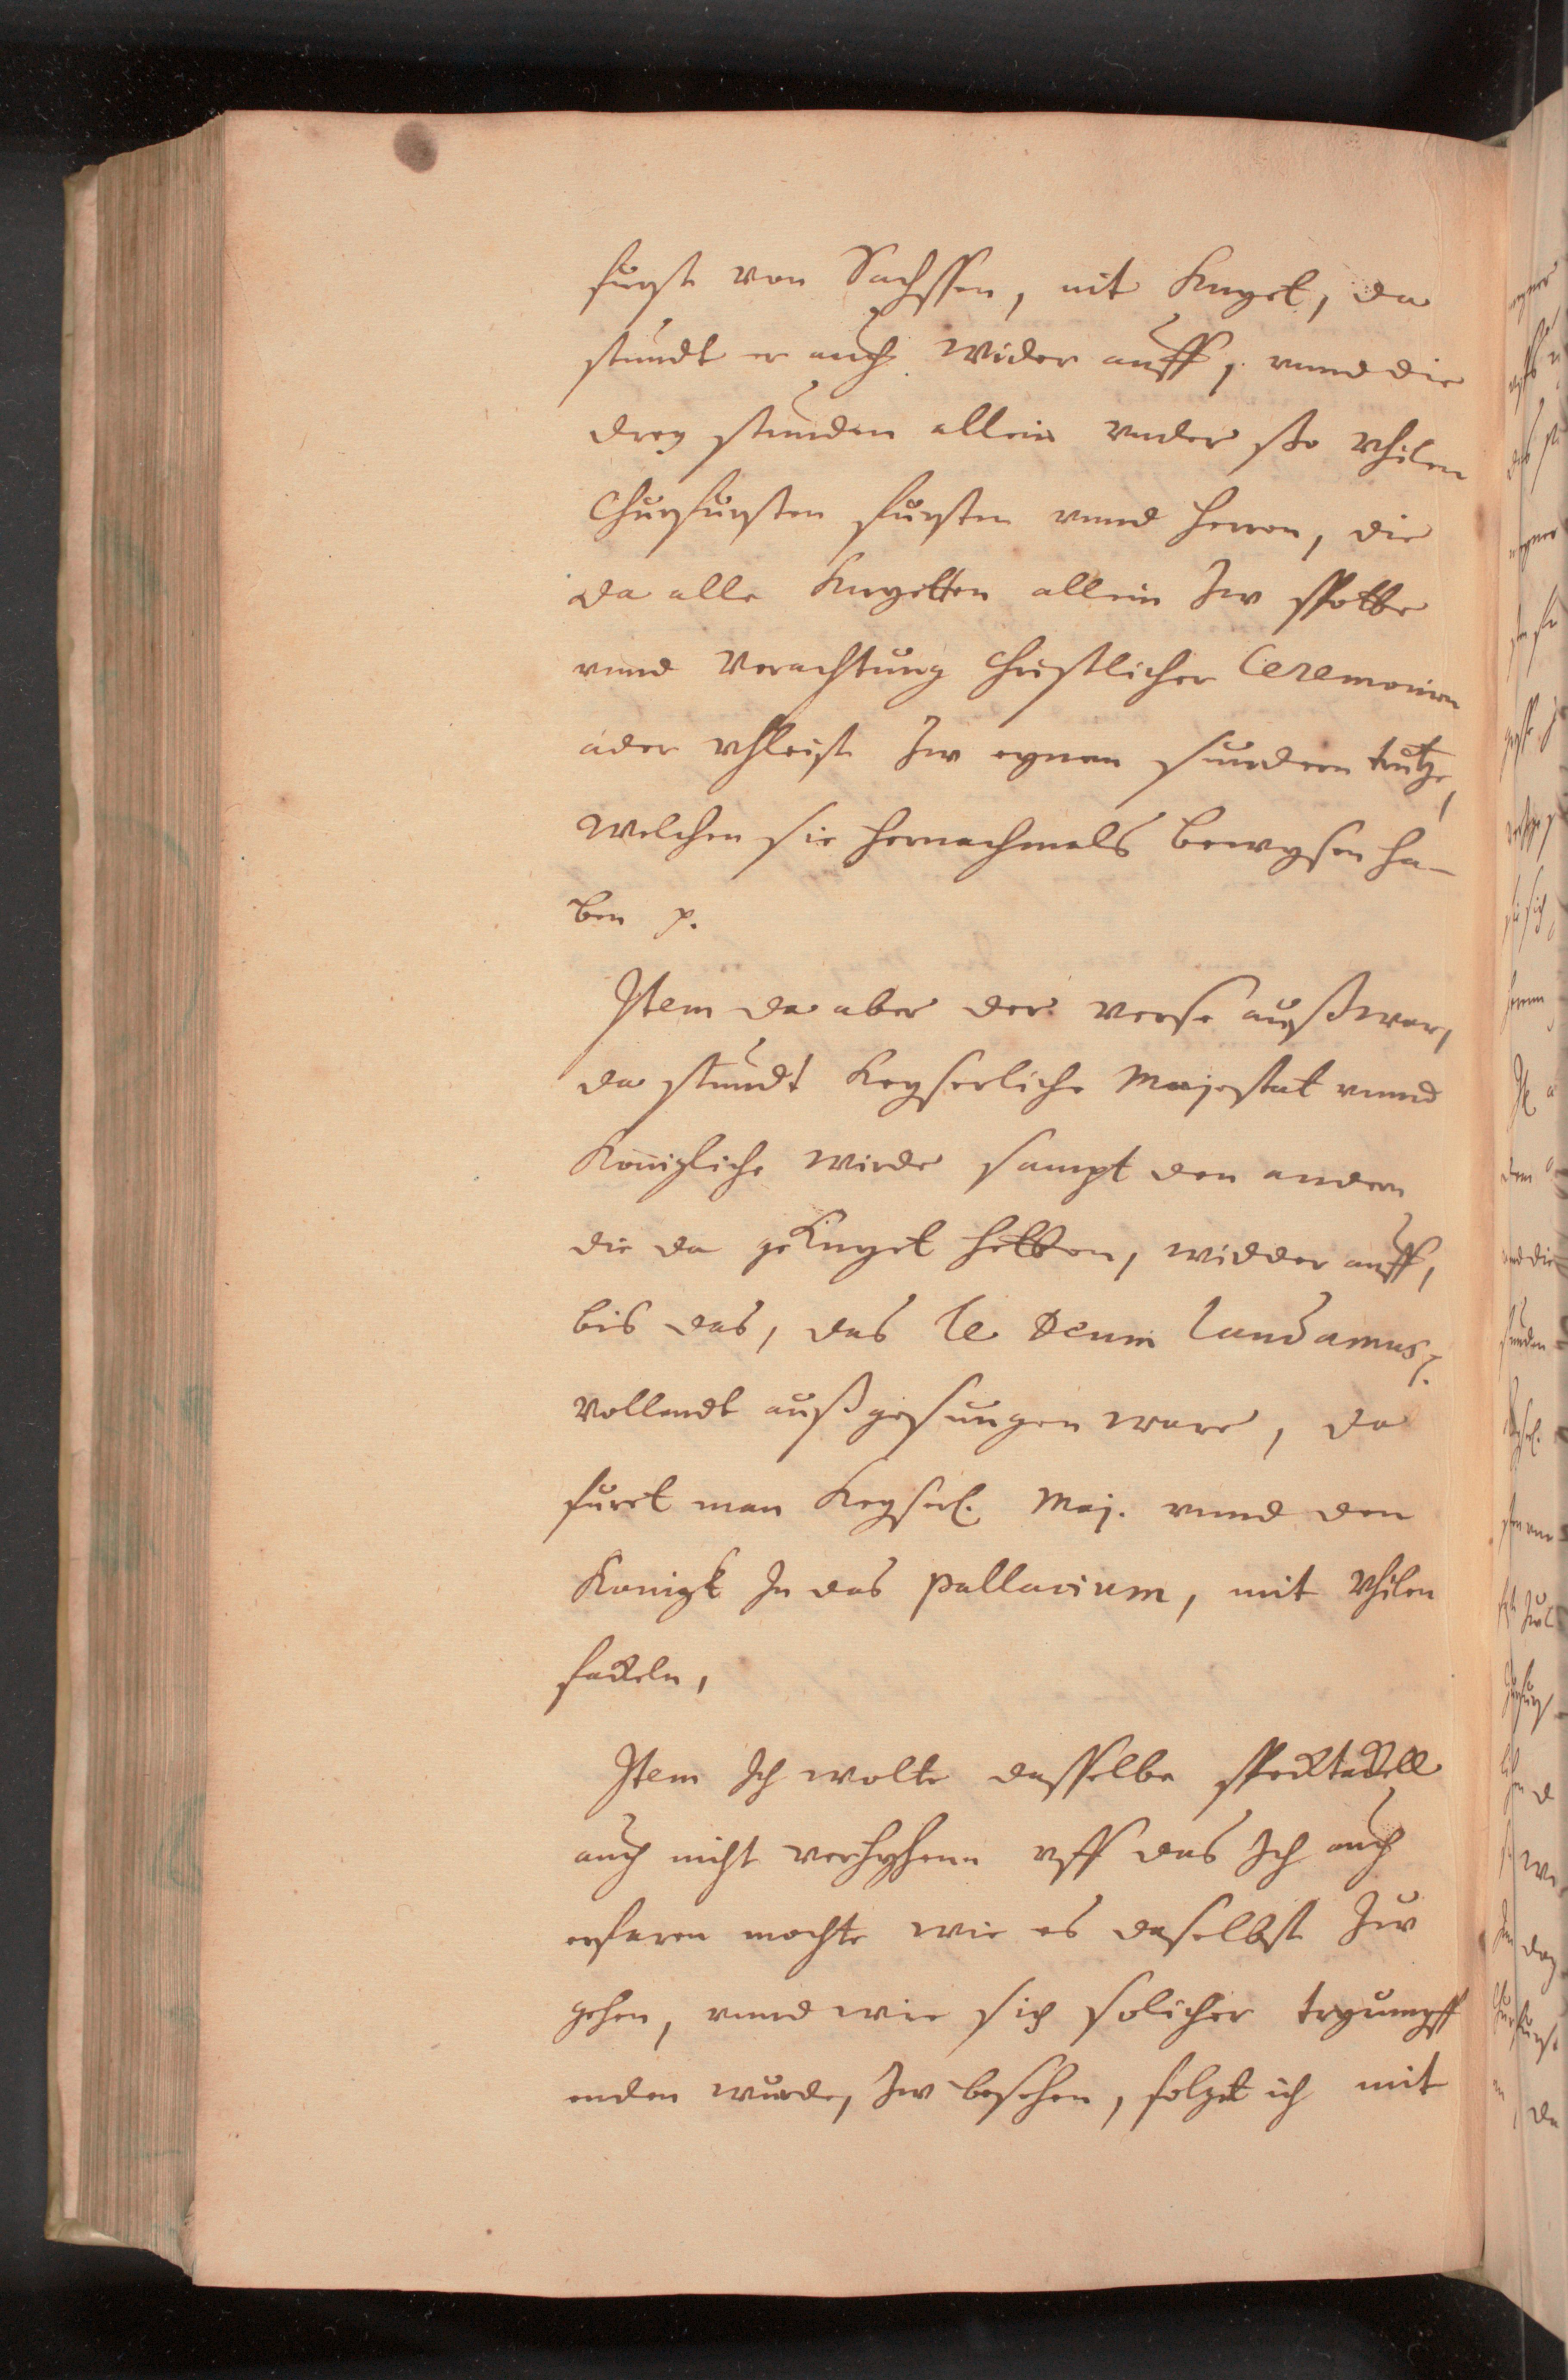 furst von Sachssen, nit knyet, da
stundt er auch wider auff, vnnd die
drey stunden allein vnder sso vhilen
Churfursten fursten vnnd herren, die
da alle knyetten allein zw spotte
vnnd verachtung christlicher Ceremonien
ader vhleist zw eynen sundern trutze,
welchen sie hernachmals bewysen ha-
ben p.
Item da aber der verse außwar,
da stundt keyserliche Majestat vnnd
Konigliche wirde sampt den andern
die da geknyet hetten, widder auff,
bis das, das Te Deum laudamus
vollendt auß gesungen ware, da
furet man Keyserl. Maj. vnnd den
Konigk In das pallacium, mit vhilen
fackeln,
Item Ich wolte dasselbe specktackell
auch nicht verhyhenn vff das Ich auch
erfaren mochte wie es daselbst zw
gehen, vnnd wie sich solicher tryumpff
enden wurde, zw besehen, folget ich mit